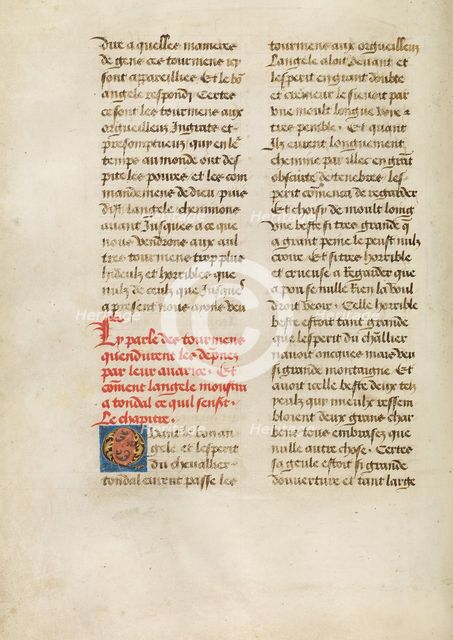 dux a quelles manieres
de gens ces tourmens icy
sont appareillies Et le bo
angele respondi Certes
ce sont les tourmens aux
orgueilleux Ingratz et
presomptueux qui en le
temps au monde ont des
pite les poures et les com
mandemens de dieu puis
dist langele cheminons
auant Jusques a ce que
nous vendrons aux aul
tres tourmens trop plus
hideulx et horribles que
nulz de ceulx que Jusques
a present nous ayons veu
Cy parle des tourmens
quendurent les dampnez
par leur auarice · Et
comment langele monstra
a tondal ce quil sensuit ·
Le chapitre ·
Quant le bon an
gele et lesperit
du cheuallier
tondal eurent passe les
tourmens aux orgueilleux
Langele aloit deuant et
lesperit en grant doubte
et cremeur le sieuoit par
vne moult longue voye ·
tres penible · Et quant
Ilz eurent longuement
chemine par illec en grant
obscurte de tenebres les
perit commenca de regarder
Et choisy de moult loing
vne beste si tres grande qu
a grant peine le peust nulz
croire Et si tres horrible
et crueuse a Regarder que
a pou se nulle Rien la voul
droit veoir · Celle horrible
beste estoit tant grande
que lesperit du cheuallier
nauoit oncques mais veu
si grande montaigne Et
auoit icelle beste deux telz
yeulx qui mieulx ressem
bloient deux grans char
bons tous embrasez que
nulle autre chose · Certes
sa gueule estoit si grande
douuerture et tant large